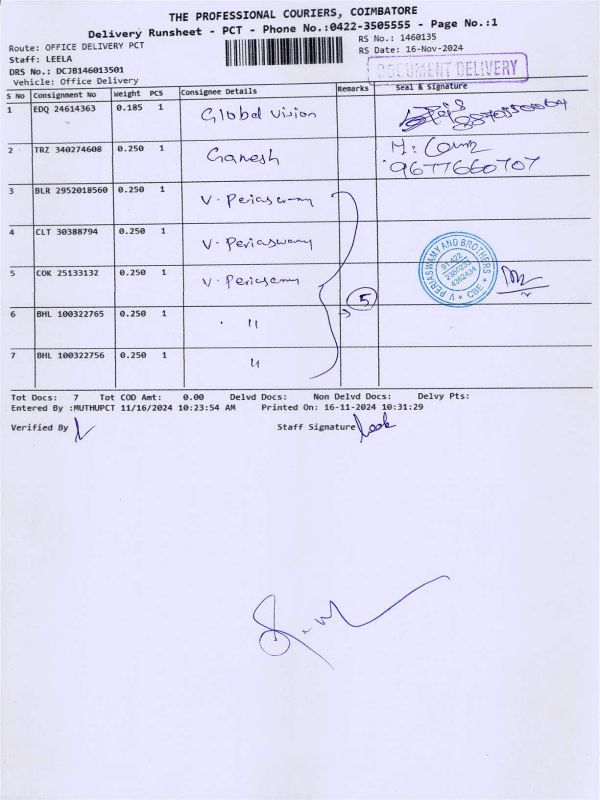 THE PROFESSIONAL COURIERS, COIMBATORE
Delivery Runsheet - PCT - Phone No.:0422-3505555 - Page No.:1
Route: OFFICE DELIVERY PCT
RS No.: 1460135
Staff: LEELA
RS Date: 16-Nov-2024
DRS No.: DCJB146013501
DOCUMENT DELIVERY
Vehicle: Office Delivery
S No Consignment No Weight PCS Consignee Details Remarks Seal & Signature
1 EDQ 24614363 0.185 1 Global Vision
2 TRZ 340274608 0.250 1 Ganesh 9677660707
3 BLR 2952018560 0.250 1 V. Periaswamy
4 CLT 30388794 0.250 1 V. Periaswamy
V PERIASWAMY AND BROTHERS * CBE *
5 COK 25133132 0.250 1 V. Periaswamy
5
6 BHL 100322765 0.250 1 "
7 BHL 100322756 0.250 1 "
Tot Docs: 7 Tot COD Amt: 0.00 Delvd Docs: Non Delvd Docs: Delvy Pts:
Entered By :MUTHUPCT 11/16/2024 10:23:54 AM Printed On: 16-11-2024 10:31:29
Verified By Staff Signature